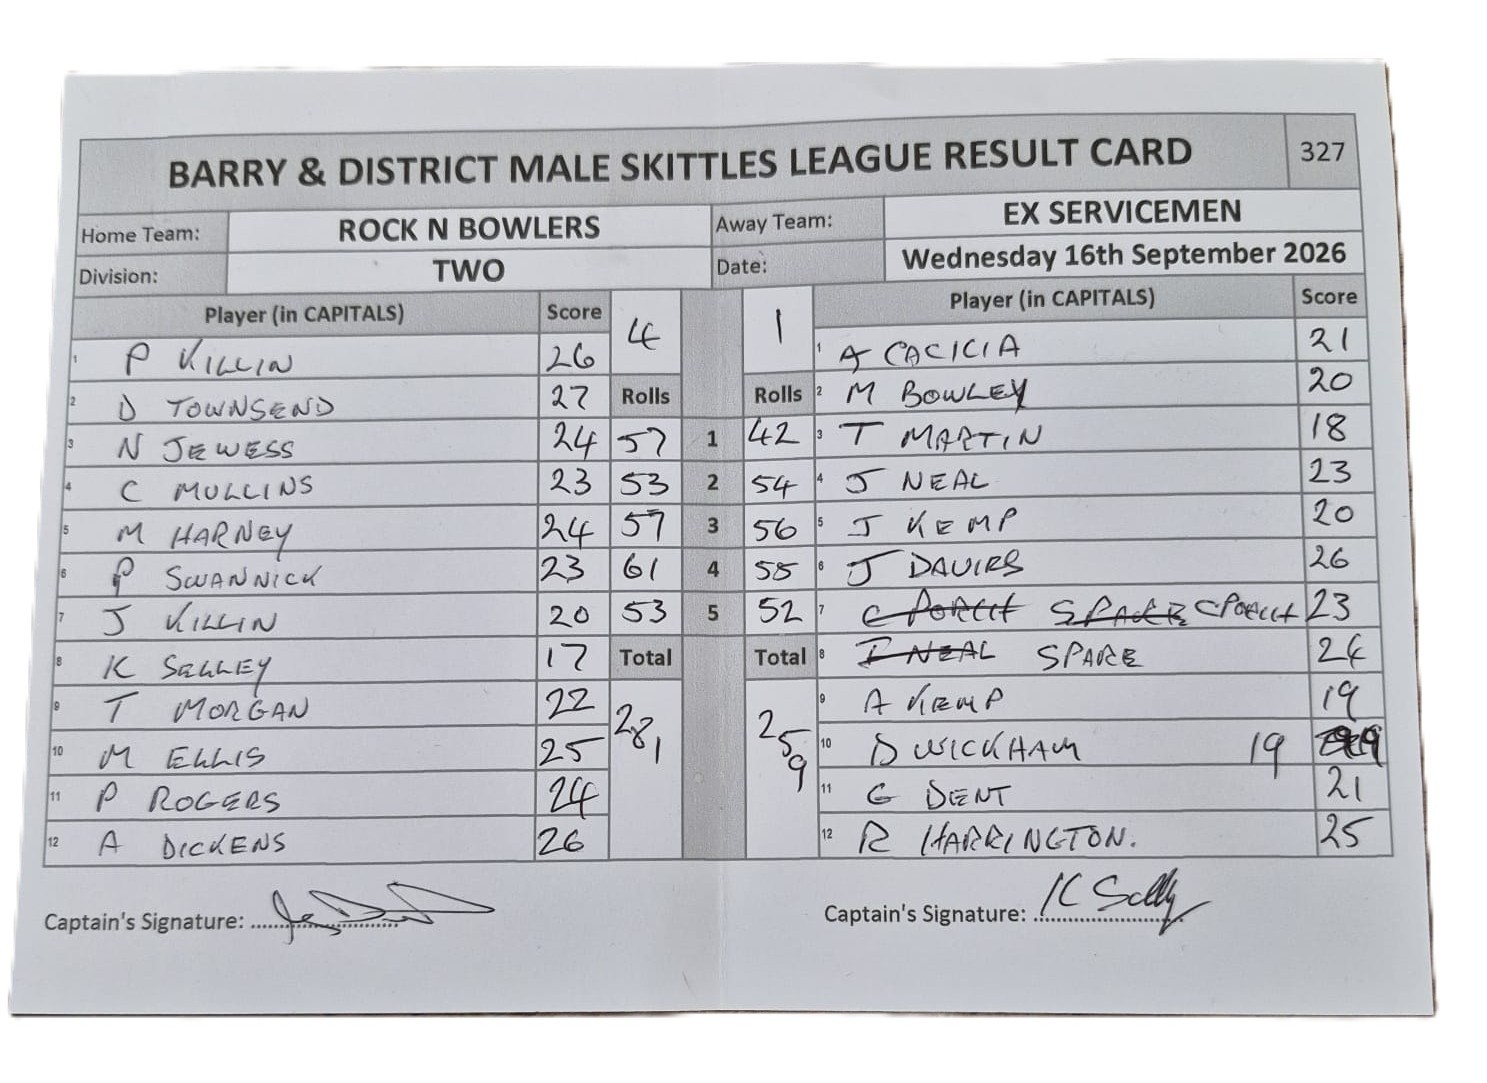 BARRY & DISTRICT MALE SKITTLES LEAGUE RESULT CARD 327
Home Team: ROCK N BOWLERS Away Team: EX SERVICEMEN
Division: TWO Date: Wednesday 16th September 2026
Player (in CAPITALS) Score 4 1 Player (in CAPITALS) Score
1 P KILLIN 26 1 A CACICIA 21
2 D TOWNSEND 27 Rolls Rolls 2 M BOWLEY 20
3 N JEWESS 24 57 1 42 3 T MARTIN 18
4 C MULLINS 23 53 2 54 4 J NEAL 23
5 M HARNEY 24 57 3 56 5 J KEMP 20
6 P SWANNICK 23 61 4 55 6 J DAVIES 26
7 J KILLIN 20 53 5 52 7 C PORCH SPARE C PORCH 23
8 K SELLEY 17 Total Total 8 I NEAL SPARE 24
9 T MORGAN 22 281 259 9 A KEMP 19
10 M ELLIS 25 10 D WICKHAM 19
11 P ROGERS 24 11 G DENT 21
12 A DICKENS 26 12 R HARRINGTON. 25
Captain's Signature: Captain's Signature: K Selly